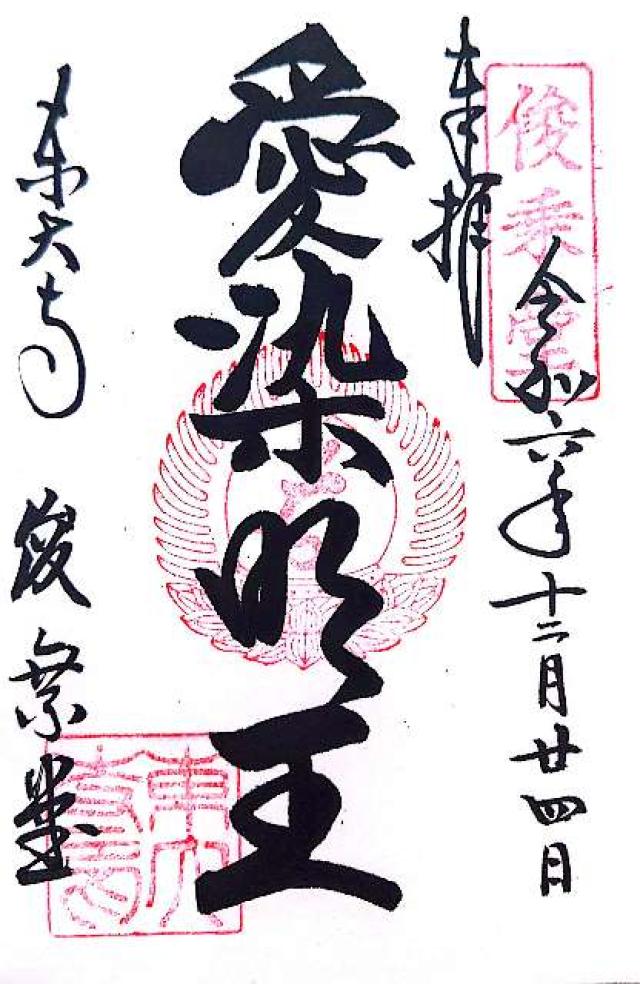 奉拝
俊乗堂
令和六年十二月廿四日
愛染明王
東大寺
俊乗堂